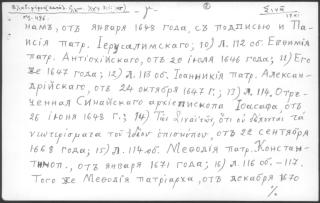 намъ, отъ января 1648 года, съ подписью и Па-
исія патр. Іерусалимскаго; 10) л. 112 об. Евѳимія
патр. Антіохійскаго, отъ 20 іюля 1646 года; 11) Его
же 1647 года; 12) л. 113 об. Іоанникія патр. Алексан-
дрійскаго, отъ 24 октября 1647 г.; 13) л. 114, Отре-
ченная Синайскаго архіепископа Іоасафа, отъ
26 іюня 1648 г.; 14) Τῶν Σιναϊτῶν, ὅτι οὐ δέχονται τὰ
γνωρίσματα τοῦ ἰδίου ἐπισκόπου, отъ 22 сентября
1668 года; 15) л. 114 об. Меѳодія патр. Констан-
тиноп., отъ января 1671 года; 16) л. 116 об. -117.
Того же Меѳодія патріарха, отъ декабря 1670
%